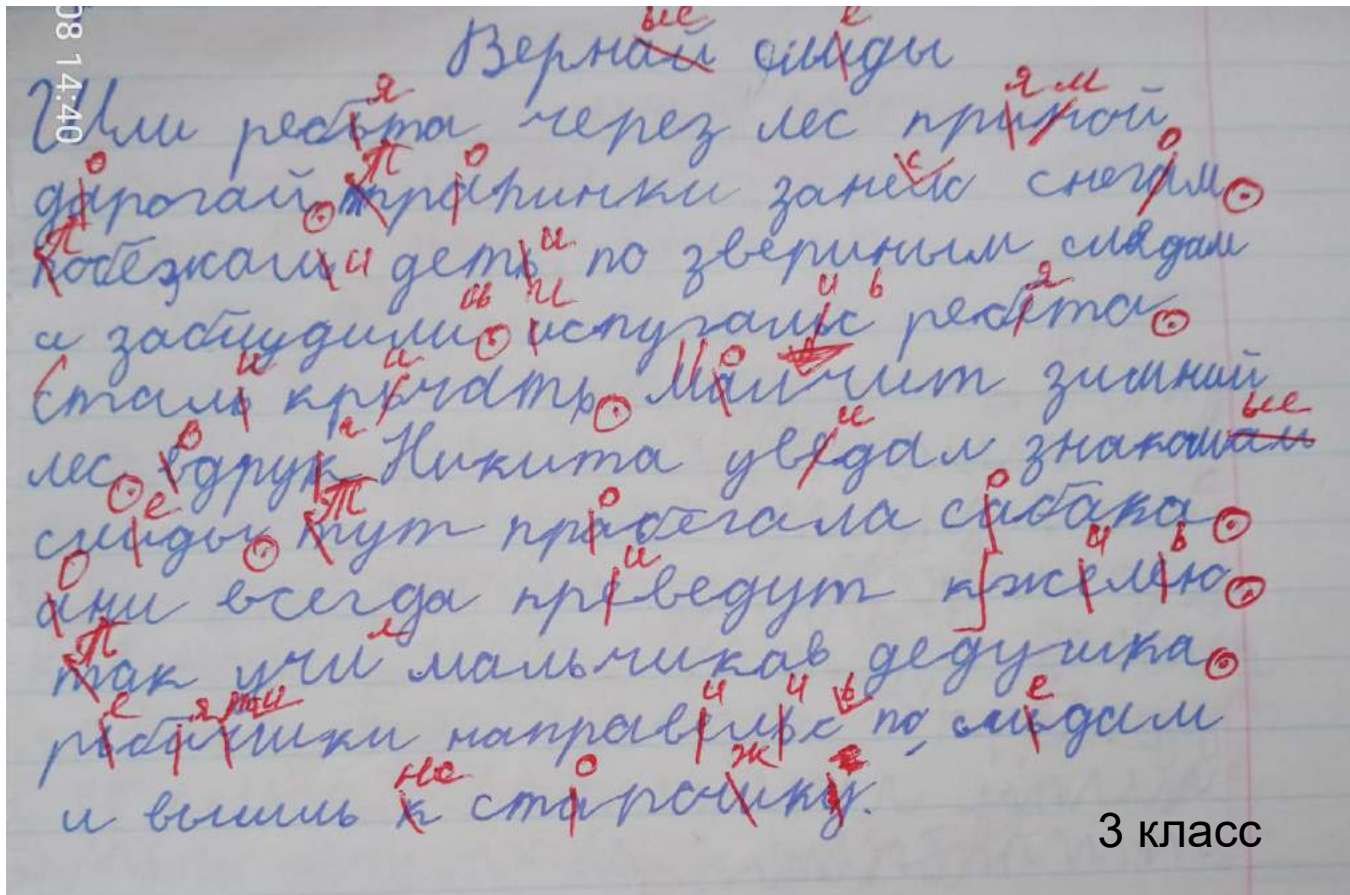 08 14:40
Вернай слиды
Шли ребьта через лес приной
дарогай трапинки занейс снегам
побежаль деть по звериным следам
и заблудили испугальс ребьта
Сталь крычать Малчит зимний
лес вдрук Никита уведал знакомаи
слиды тут прабегала сабака
ани всегда преведут кжелею
так учи мальчикав дедушка
направельс по сльдам
и вышль к старошику.
3 класс